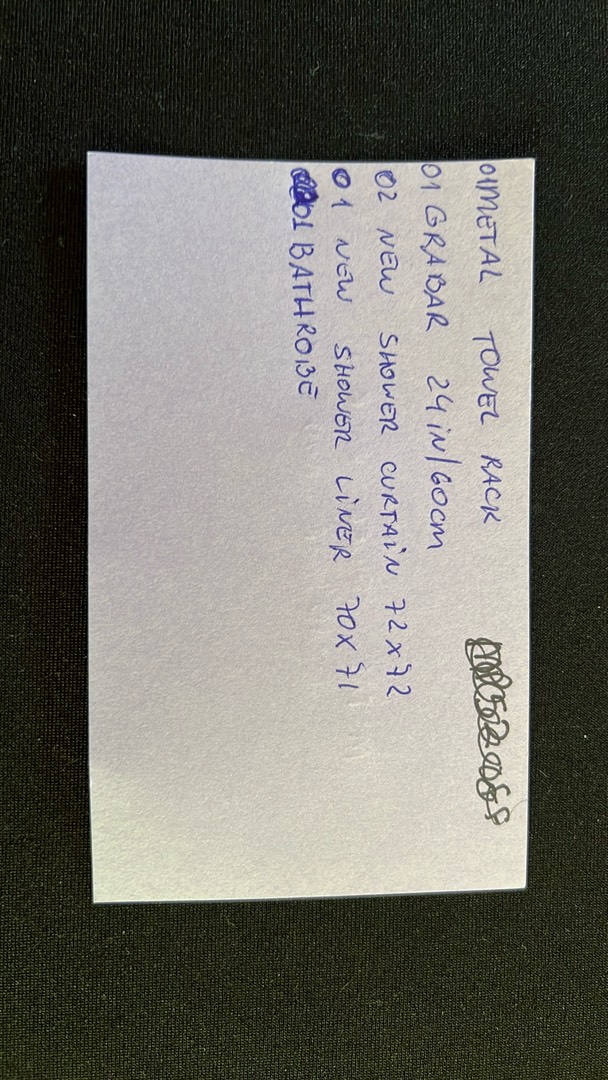 01 METAL TOWEL RACK
01 GRABAR 24 iN/60cm
02 NEW SHOWER CURTAiN 72x72
01 NEW SHOWER LiNER 70x71
01 BATHROBE